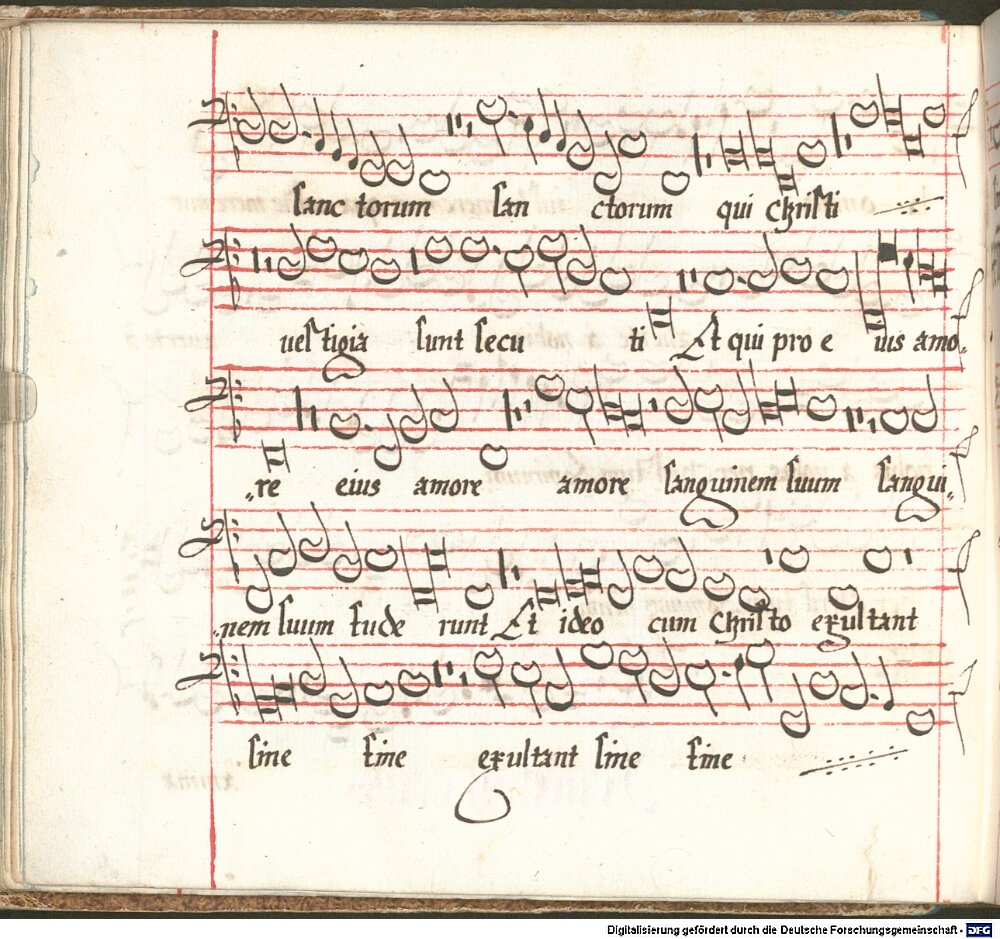 sanctorum san ctorum qui christi
uestigia sunt secu ti Et qui pro e ius amo„
„re eius amore amore sanguinem suum sangui„
„nem suum fude runt Et ideo cum Christo exultant
sine fine exultant sine fine
Digitalisierung gefördert durch die Deutsche Forschungsgemeinschaft - DFG